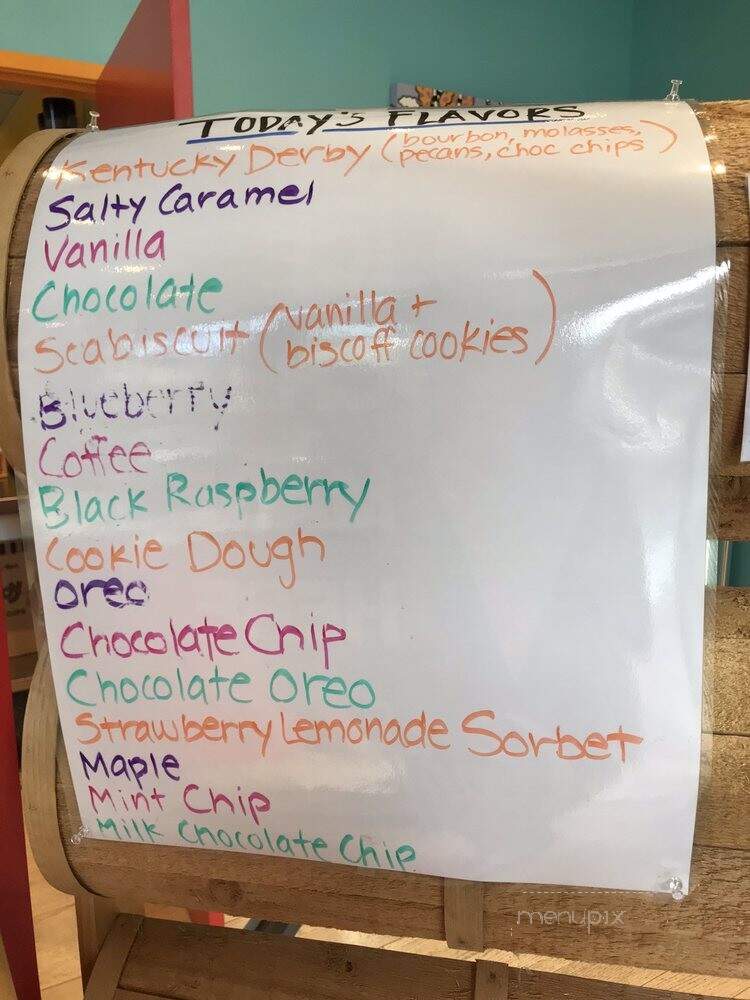 TODAY'S FLAVORS
Kentucky Derby (bourbon, molasses,
pecans, choc chips)
Salty Caramel
Vanilla
Chocolate
Seabiscuit (vanilla +
biscoff cookies)
Blueberry
Coffee
Black Raspberry
Cookie Dough
Oreo
Chocolate Chip
Chocolate Oreo
Strawberry Lemonade Sorbet
Maple
Mint Chip
Milk Chocolate Chip
menupix